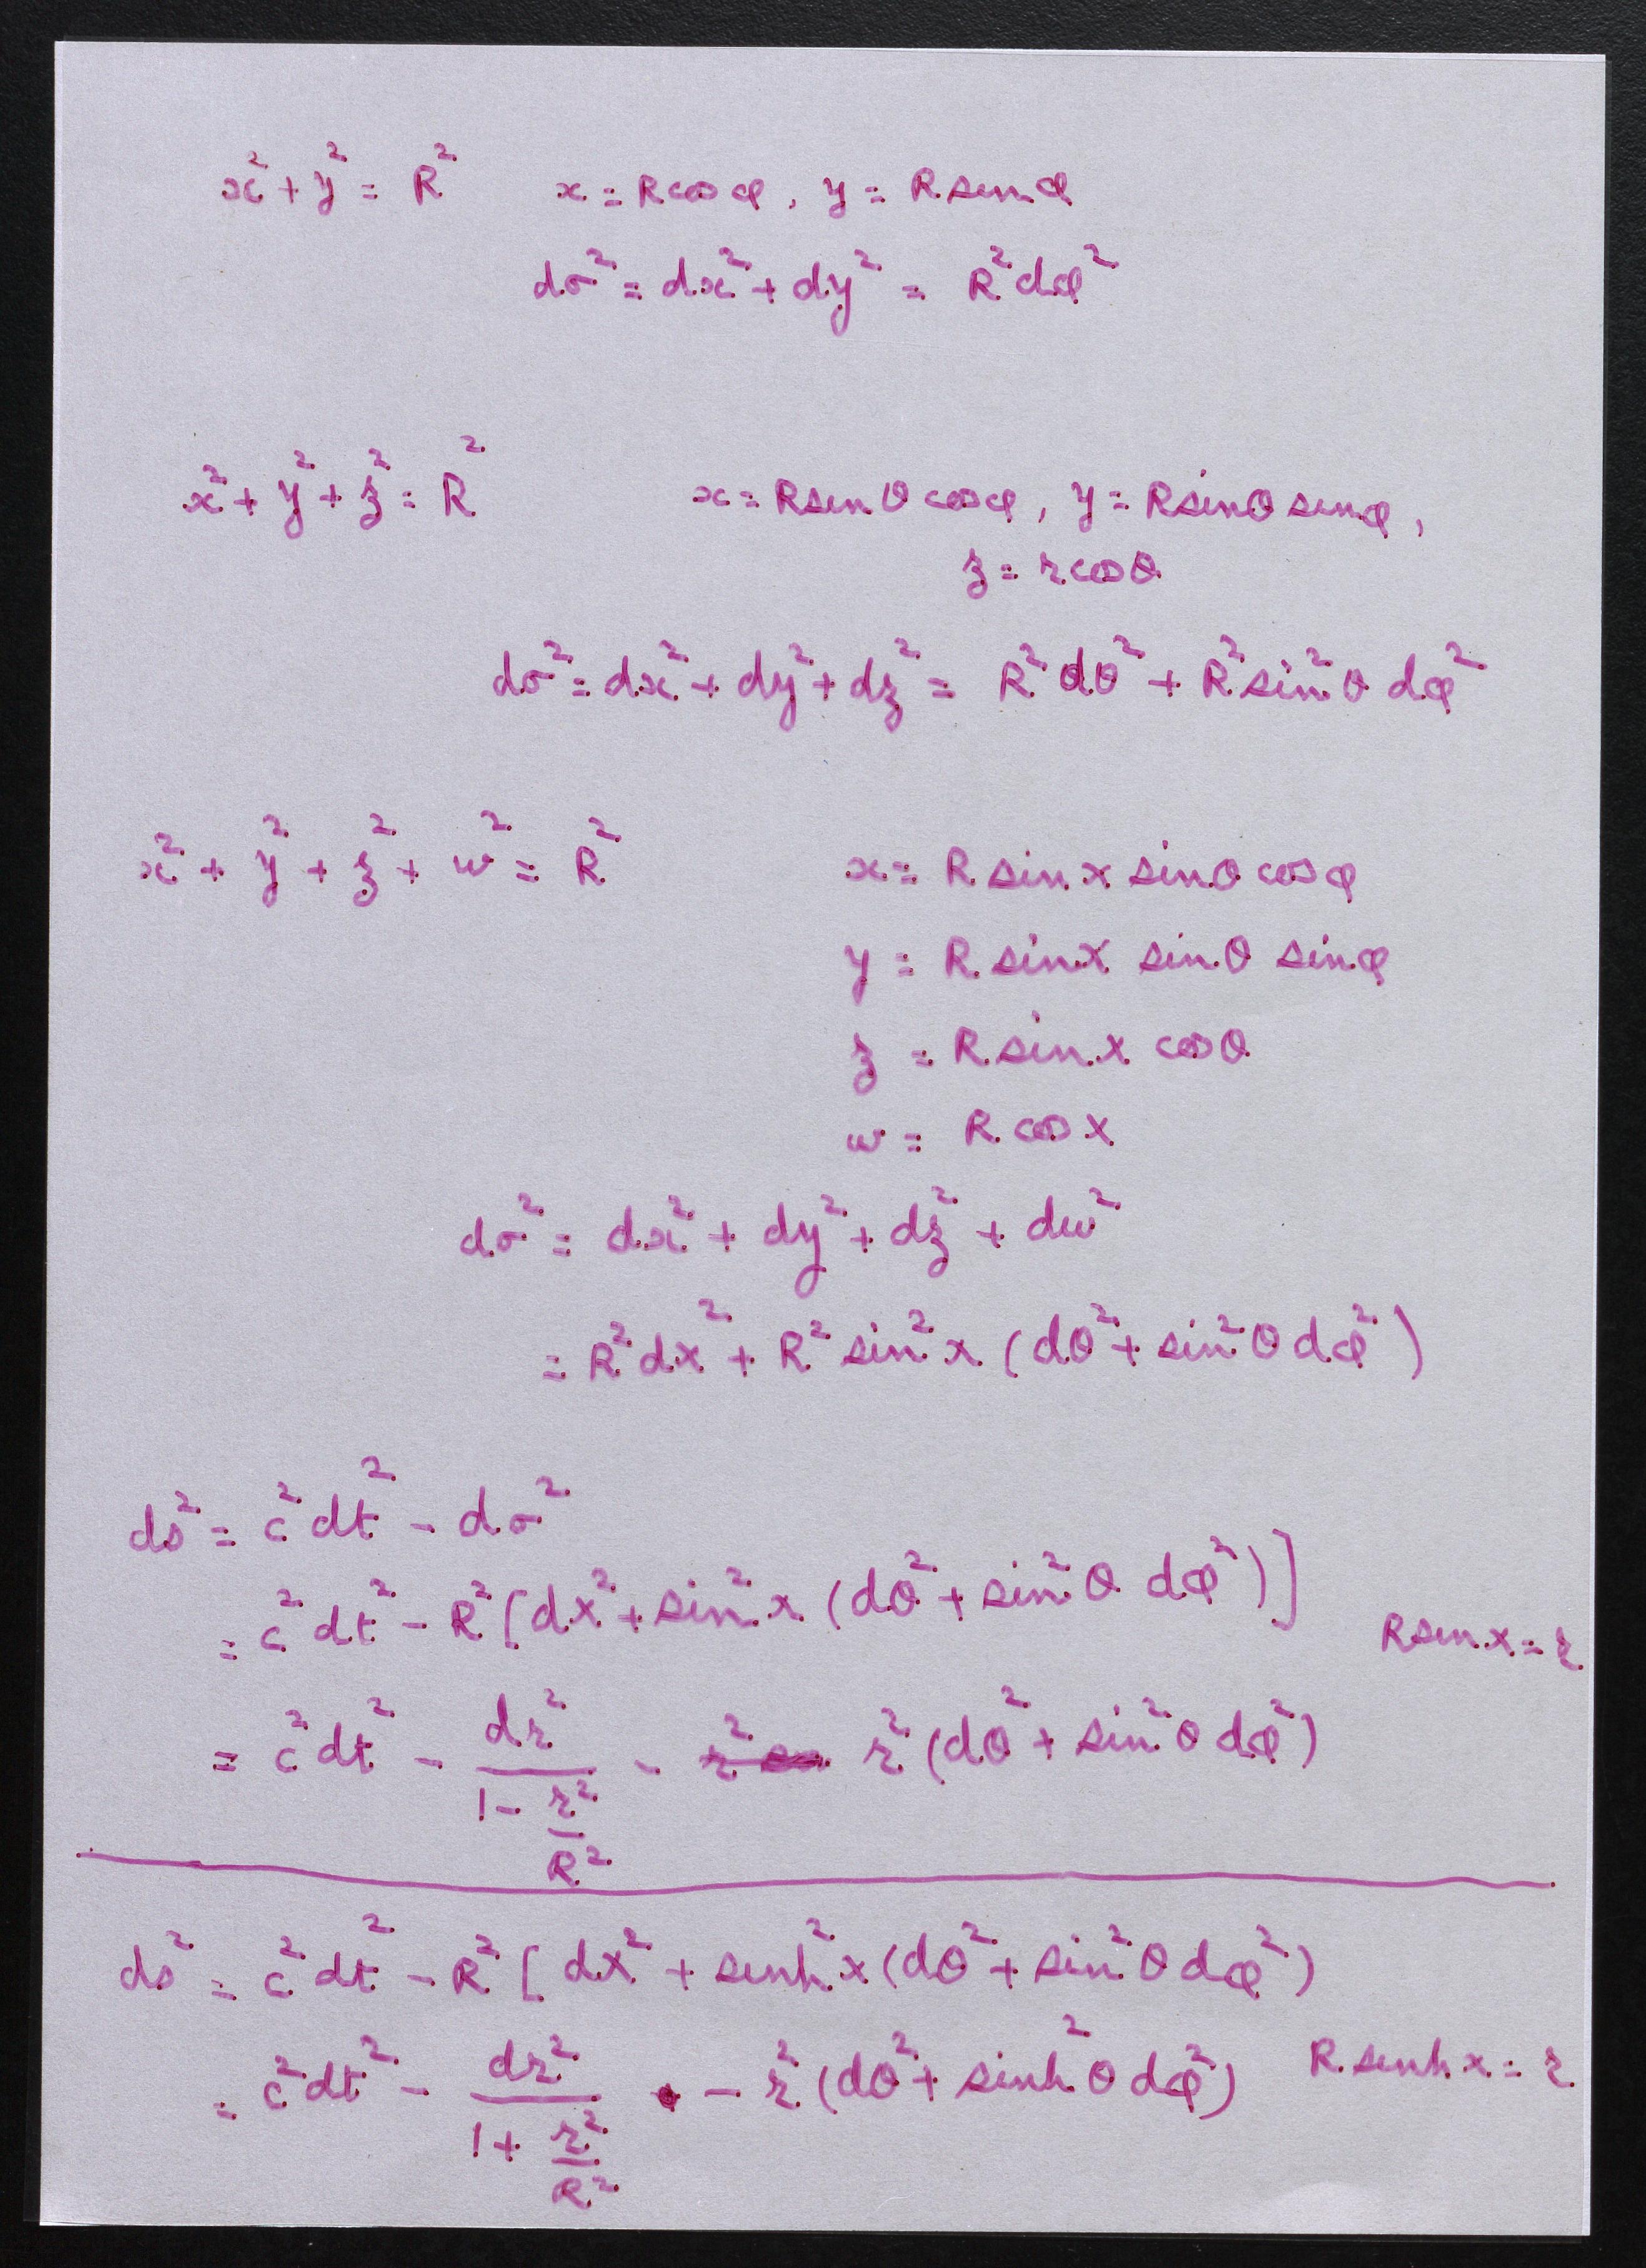 x² + y² = R² x = R cos φ, y = R sin φ
dσ² = dx² + dy² = R² dφ²
x² + y² + z² = R² x = R sin θ cos φ, y = R sin θ sin φ,
z = r cos θ
dσ² = dx² + dy² + dz² = R² dθ² + R² sin² θ dφ²
x² + y² + z² + w² = R² x = R sin χ sin θ cos φ
y = R sin χ sin θ sin φ
z = R sin χ cos θ
w = R cos χ
dσ² = dx² + dy² + dz² + dw²
= R² dχ² + R² sin² χ (dθ² + sin² θ dφ²)
ds² = c² dt² - dσ²
= c² dt² - R² [dχ² + sin² χ (dθ² + sin² θ dφ²)] R sin χ = r
= c² dt² - dr² / (1 - r²/R²) - r² (dθ² + sin² θ dφ²)
ds² = c² dt² - R² [dχ² + sinh² χ (dθ² + sin² θ dφ²)
= c² dt² - dr² / (1 + r²/R²) - r² (dθ² + sinh² θ dφ²) R sinh χ = r